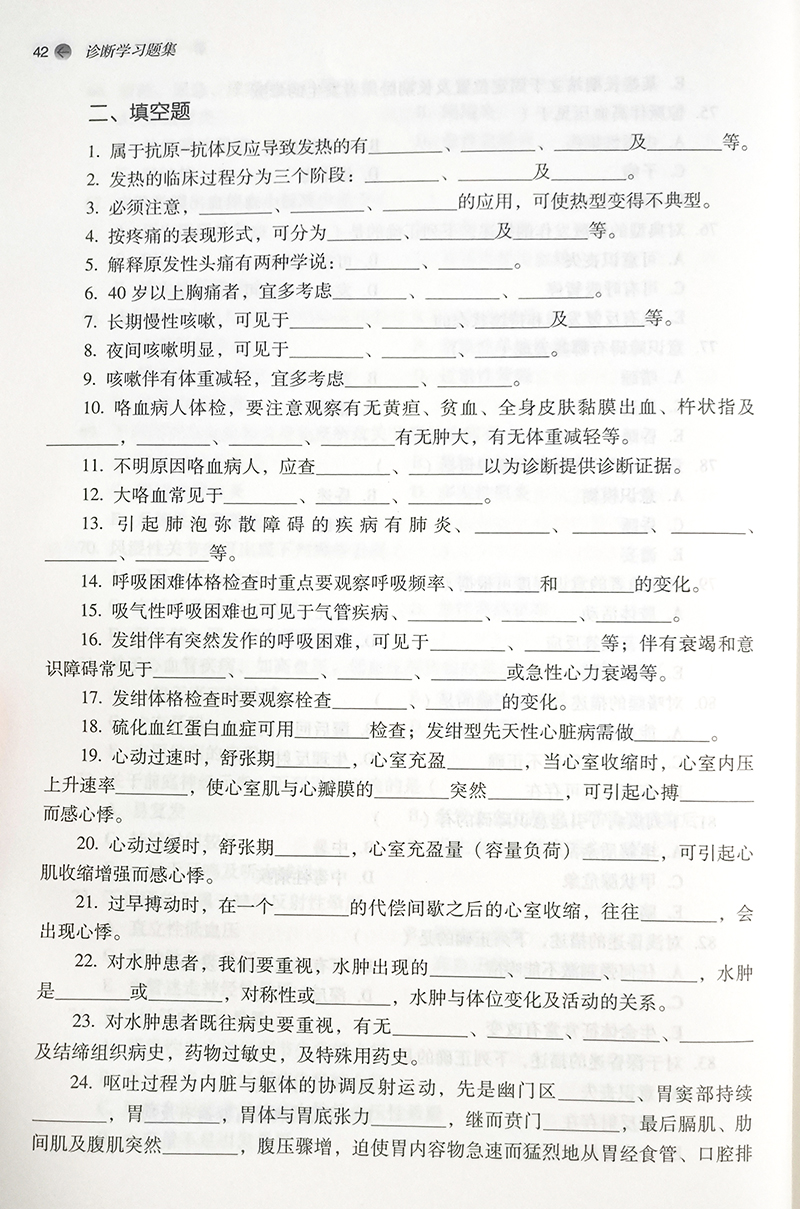 42 诊断学习题集
二、填空题
1. 属于抗原-抗体反应导致发热的有________、________、________及________等。
2. 发热的临床过程分为三个阶段：________、________及________。
3. 必须注意，________、________、________的应用，可使热型变得不典型。
4. 按疼痛的表现形式，可分为________、________及________等。
5. 解释原发性头痛有两种学说：________、________。
6. 40岁以上胸痛者，宜多考虑________、________、________。
7. 长期慢性咳嗽，可见于________、________、________及________等。
8. 夜间咳嗽明显，可见于________、________、________。
9. 咳嗽伴有体重减轻，宜多考虑________、________。
10. 咯血病人体检，要注意观察有无黄疸、贫血、全身皮肤黏膜出血、杵状指及
________，________、________、________有无肿大，有无体重减轻等。
11. 不明原因咯血病人，应查________、________以为诊断提供诊断证据。
12. 大咯血常见于________、________、________。
13. 引起肺泡弥散障碍的疾病有肺炎、________、________、________、
________、________等。
14. 呼吸困难体格检查时重点要观察呼吸频率、________和________的变化。
15. 吸气性呼吸困难也可见于气管疾病、________、________、________。
16. 发绀伴有突然发作的呼吸困难，可见于________、________等；伴有衰竭和意
识障碍常见于________、________、________、________或急性心力衰竭等。
17. 发绀体格检查时要观察栓查________、________的变化。
18. 硫化血红蛋白血症可用________检查；发绀型先天性心脏病需做________。
19. 心动过速时，舒张期________，心室充盈________，当心室收缩时，心室内压
上升速率________，使心室肌与心瓣膜的________突然________，可引起心搏________
而感心悸。
20. 心动过缓时，舒张期________，心室充盈量（容量负荷）________，可引起心
肌收缩增强而感心悸。
21. 过早搏动时，在一个________的代偿间歇之后的心室收缩，往往________，会
出现心悸。
22. 对水肿患者，我们要重视，水肿出现的________、________、________，水肿
是________或________，对称性或________，水肿与体位变化及活动的关系。
23. 对水肿患者既往病史要重视，有无________、________、________、________
及结缔组织病史，药物过敏史，及特殊用药史。
24. 呕吐过程为内脏与躯体的协调反射运动，先是幽门区________、胃窦部持续
________，胃________，胃体与胃底张力________，继而贲门________，最后膈肌、肋
间肌及腹肌突然________，腹压骤增，迫使胃内容物急速而猛烈地从胃经食管、口腔排